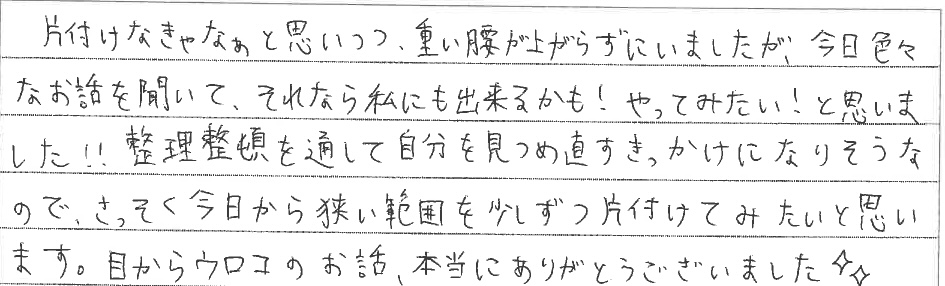 片付けなきゃなぁと思いつつ、重い腰が上がらずにいましたが、今日色々
なお話を聞いて、それなら私にも出来るかも！やってみたい！と思いま
した！！整理整頓を通して自分を見つめ直すきっかけになりそうな
ので、さっそく今日から狭い範囲を少しずつ片付けてみたいと思い
ます。目からウロコのお話、本当にありがとうございました✧✧